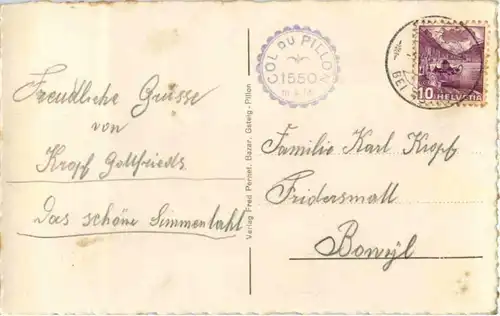 Freudliche Grüsse
von
Kropf Gottfrieds
Das schöne Simmentahl
Verlag Fred Pernet, Bazar, Gsteig-Pillon
COL DU PILLON
1550
m ü. M.
BEI
10 HELVETIA
Familie Karl Kropf
Fridersmatt
Bowyl